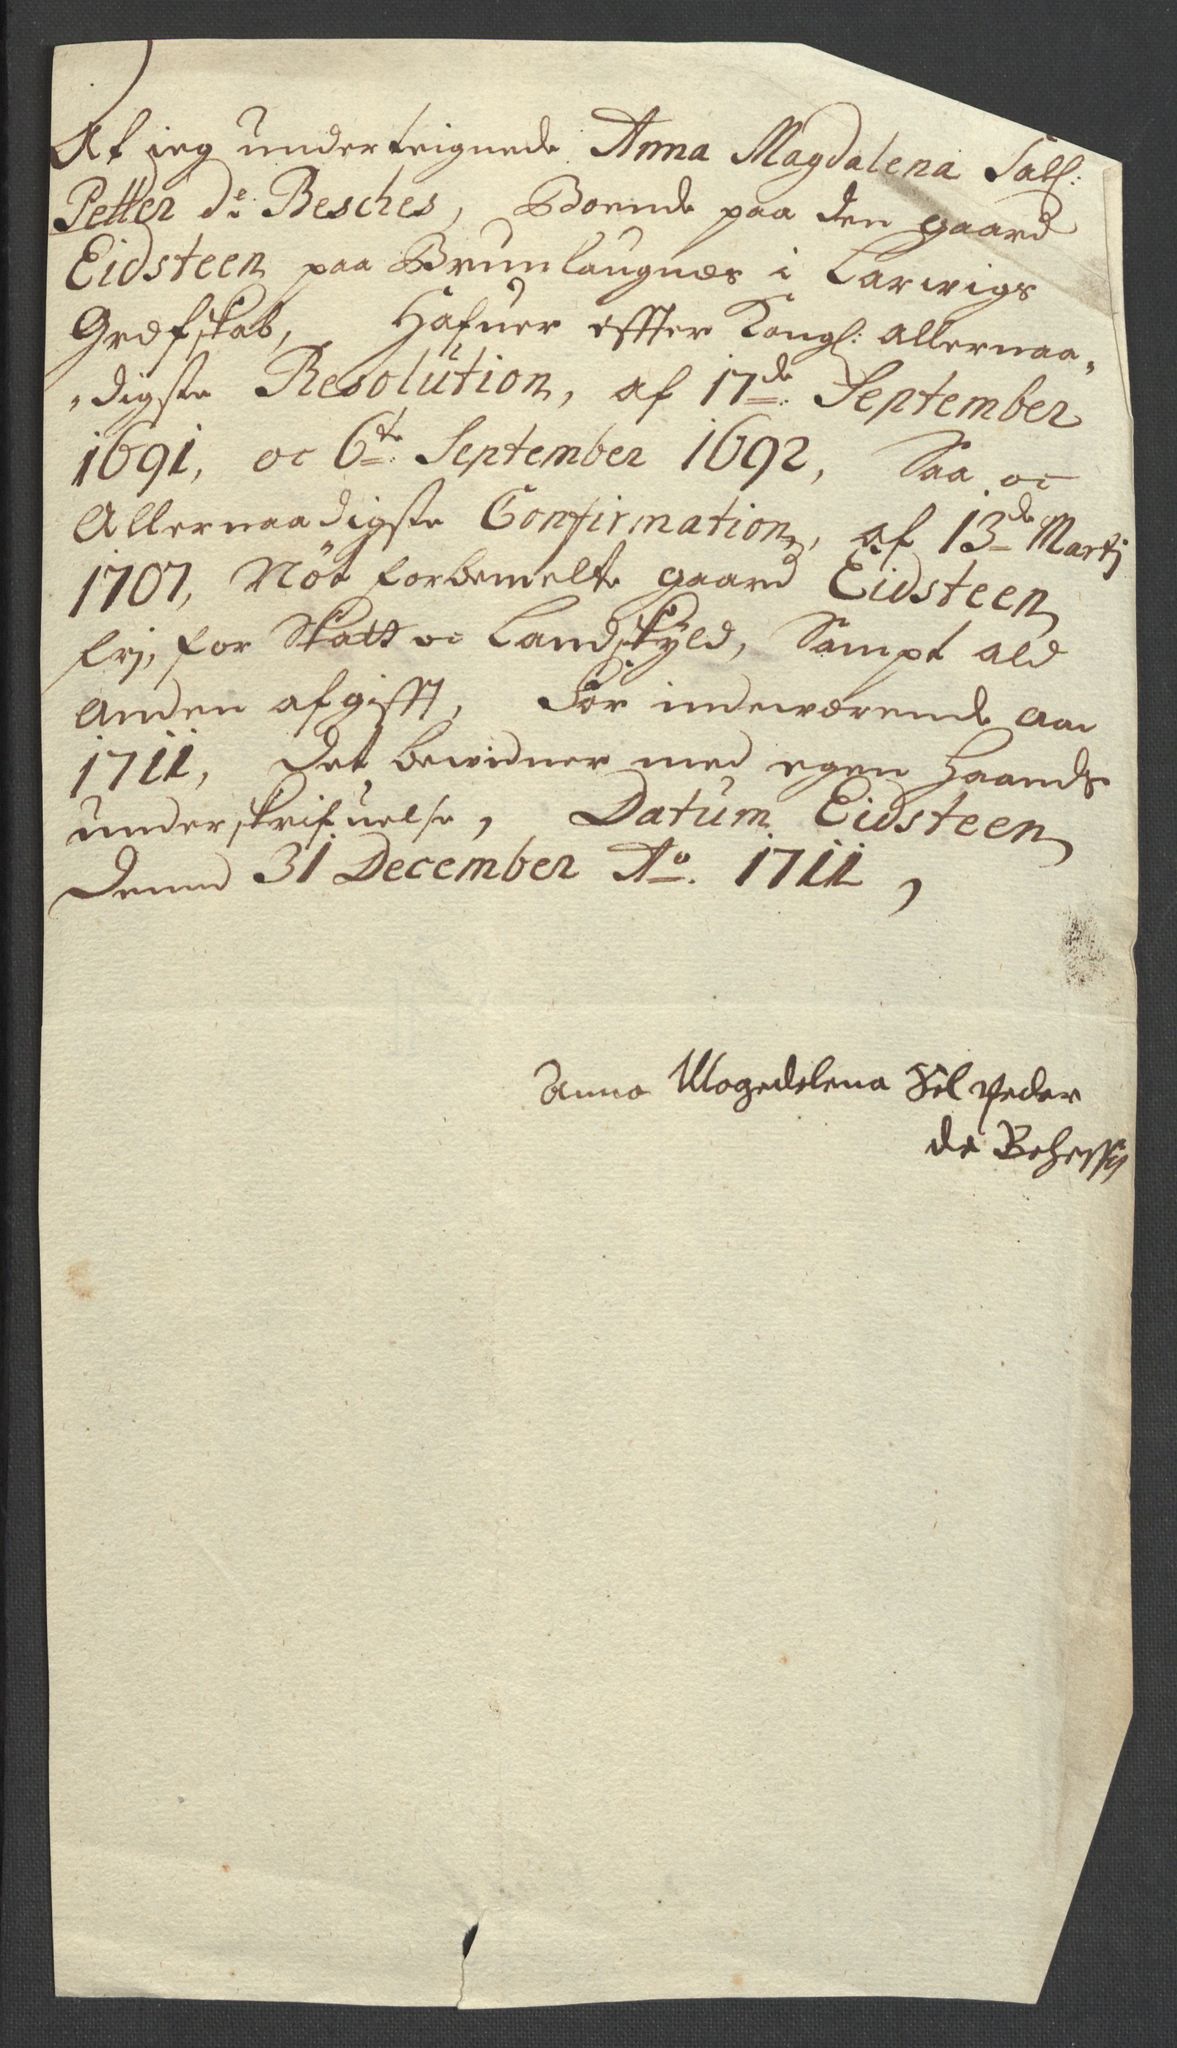 At ieg underteignede Anna Magdalena Sall:
Petter de Besches, Boende paa den gaard
Eidsteen paa Brunlaugnæs i Larwigs
Græfskab, Hafuer effter Kongl: allernaa-
-digste Resolution, af 17de September
1691, oc 6te September 1692, Saa oc
Allernaadigste Confirmation, af 13de Martij
1707, Nÿt forbemelte gaard Eidsteen
frj, for Skatt oc Landskÿld, Sampt ald
Anden afgifft, for indewærende aar
1711, Det bewidner med egen haands
underskrifuelse, Datum Eidsteen
Dennd 31 December Ao. 1711,
Anna Magedelena Sel peder
de Behesses